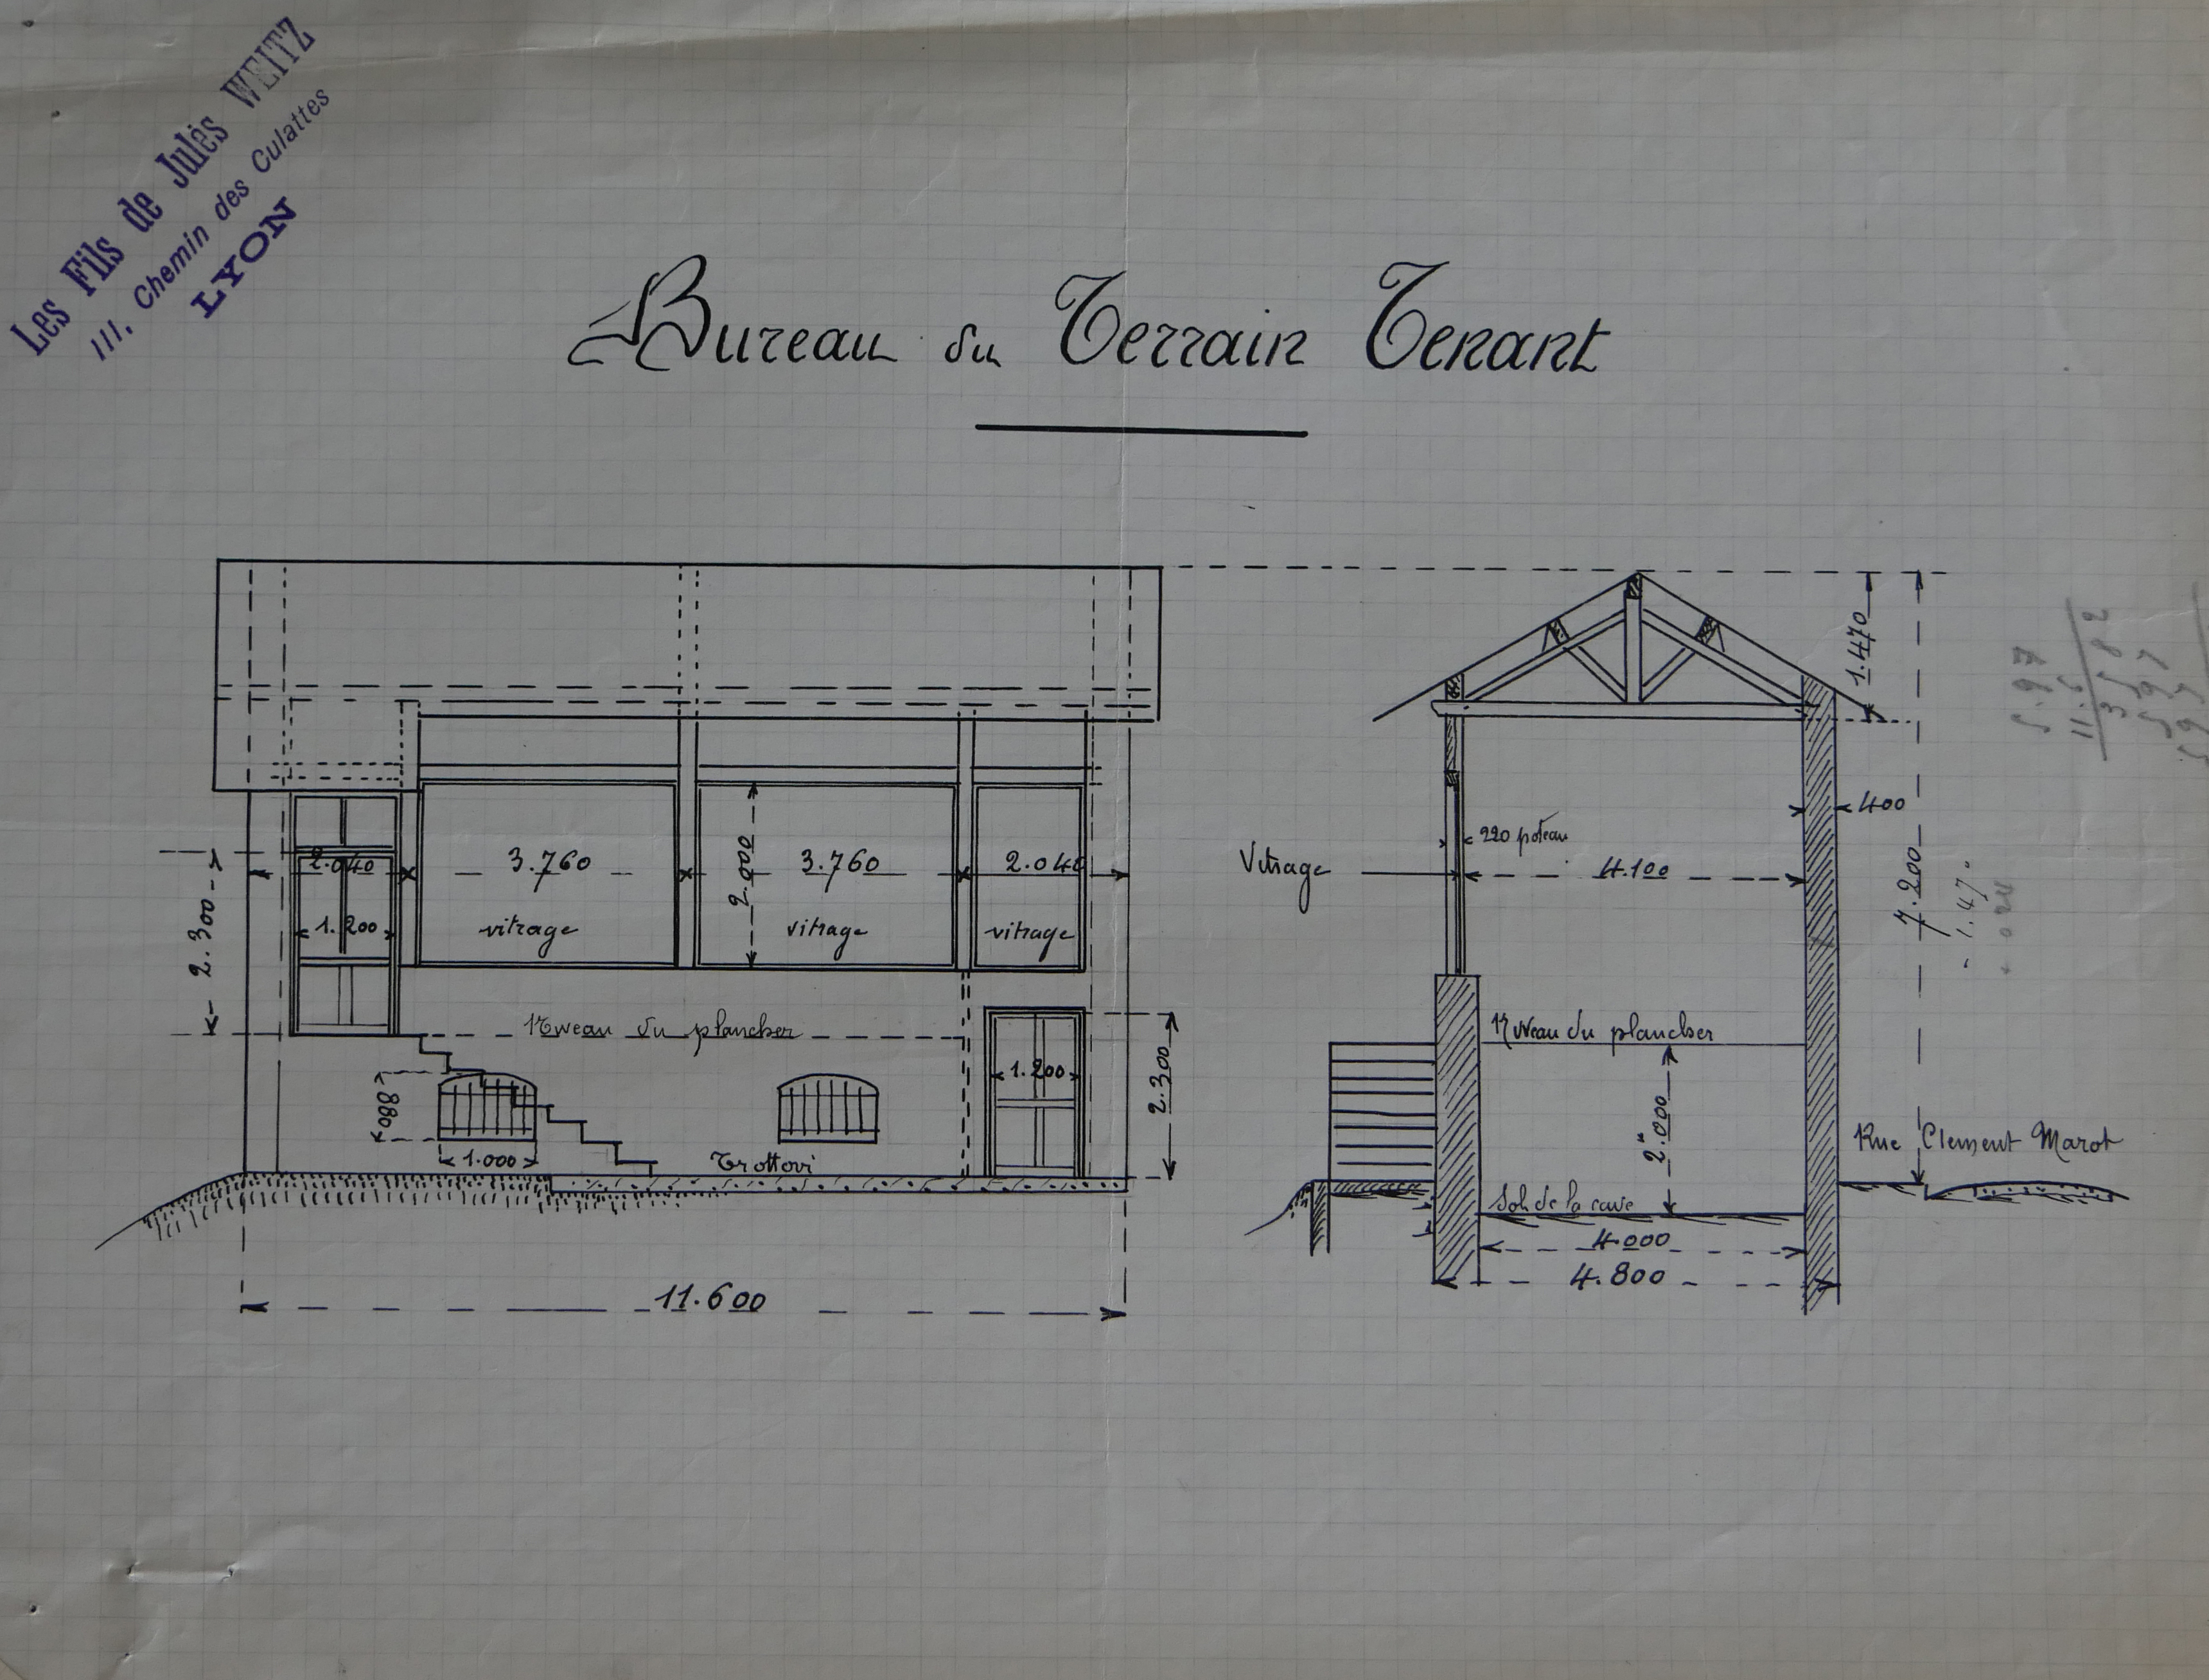 Les Fils de Jules WEITZ
111, Chemin des Culattes
LYON
Bureau du Terrain Tenant
1.470
2.040
3.760
3.760
2.040
2.000
2.300
1.200
vitrage
vitrage
vitrage
Niveau du plancher
880
1.000
Trottoir
1.200
2.300
11.600
400
220 poteau
Vitrage
4.100
7.200
1.47
Niveau du plancher
2m000
Rue Clement Marot
Sol de la cave
4.000
4.800
5.97
11.6
3582
597